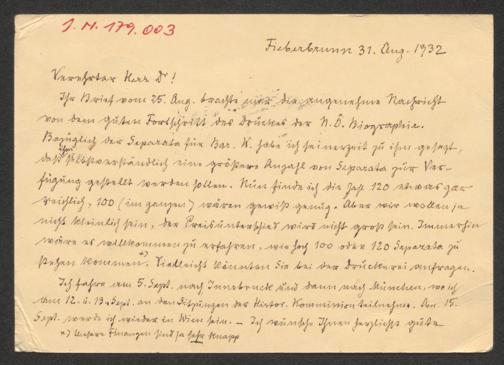 J. N. 179.003
Fieberbrunn 31. Aug. 1932
Verehrter Herr Dr!
Ihr Brief vom 25. Aug. brachte mir die angenehme Nachricht
von dem guten Fortschritt des Druckes der N. Ö. Biographie.
Bezüglich der Separata für Bar. K. habe ich seinerzeit zu ihm gesagt,
daß ihm selbstverständlich eine größere Anzahl von Separata zur Ver-
fügung gestellt werden sollen. Nun finde ich die Zahl 120 etwas gar
reichlich, 100 (im ganzen) wären gewiß genug. Aber wir wollen ja
nicht kleinlich sein, der Preisunterschied wird nicht groß sein. Immerhin
wäre es willkommen zu erfahren, wie hoch 100 oder 120 Separata zu
stehen kommen. x) Vielleicht könnten Sie bei der Druckerei anfragen.
Ich fahre am 5. Sept. nach Innsbruck und dann nach München, wo ich
am 12. u. 13. Sept. an den Sitzungen der Histor. Kommission teilnehme. Am 15.
Sept. werde ich wieder in Wien sein. — Ich wünsche Ihnen herzlichst gute
x) Unsere Finanzen sind ja sehr knapp